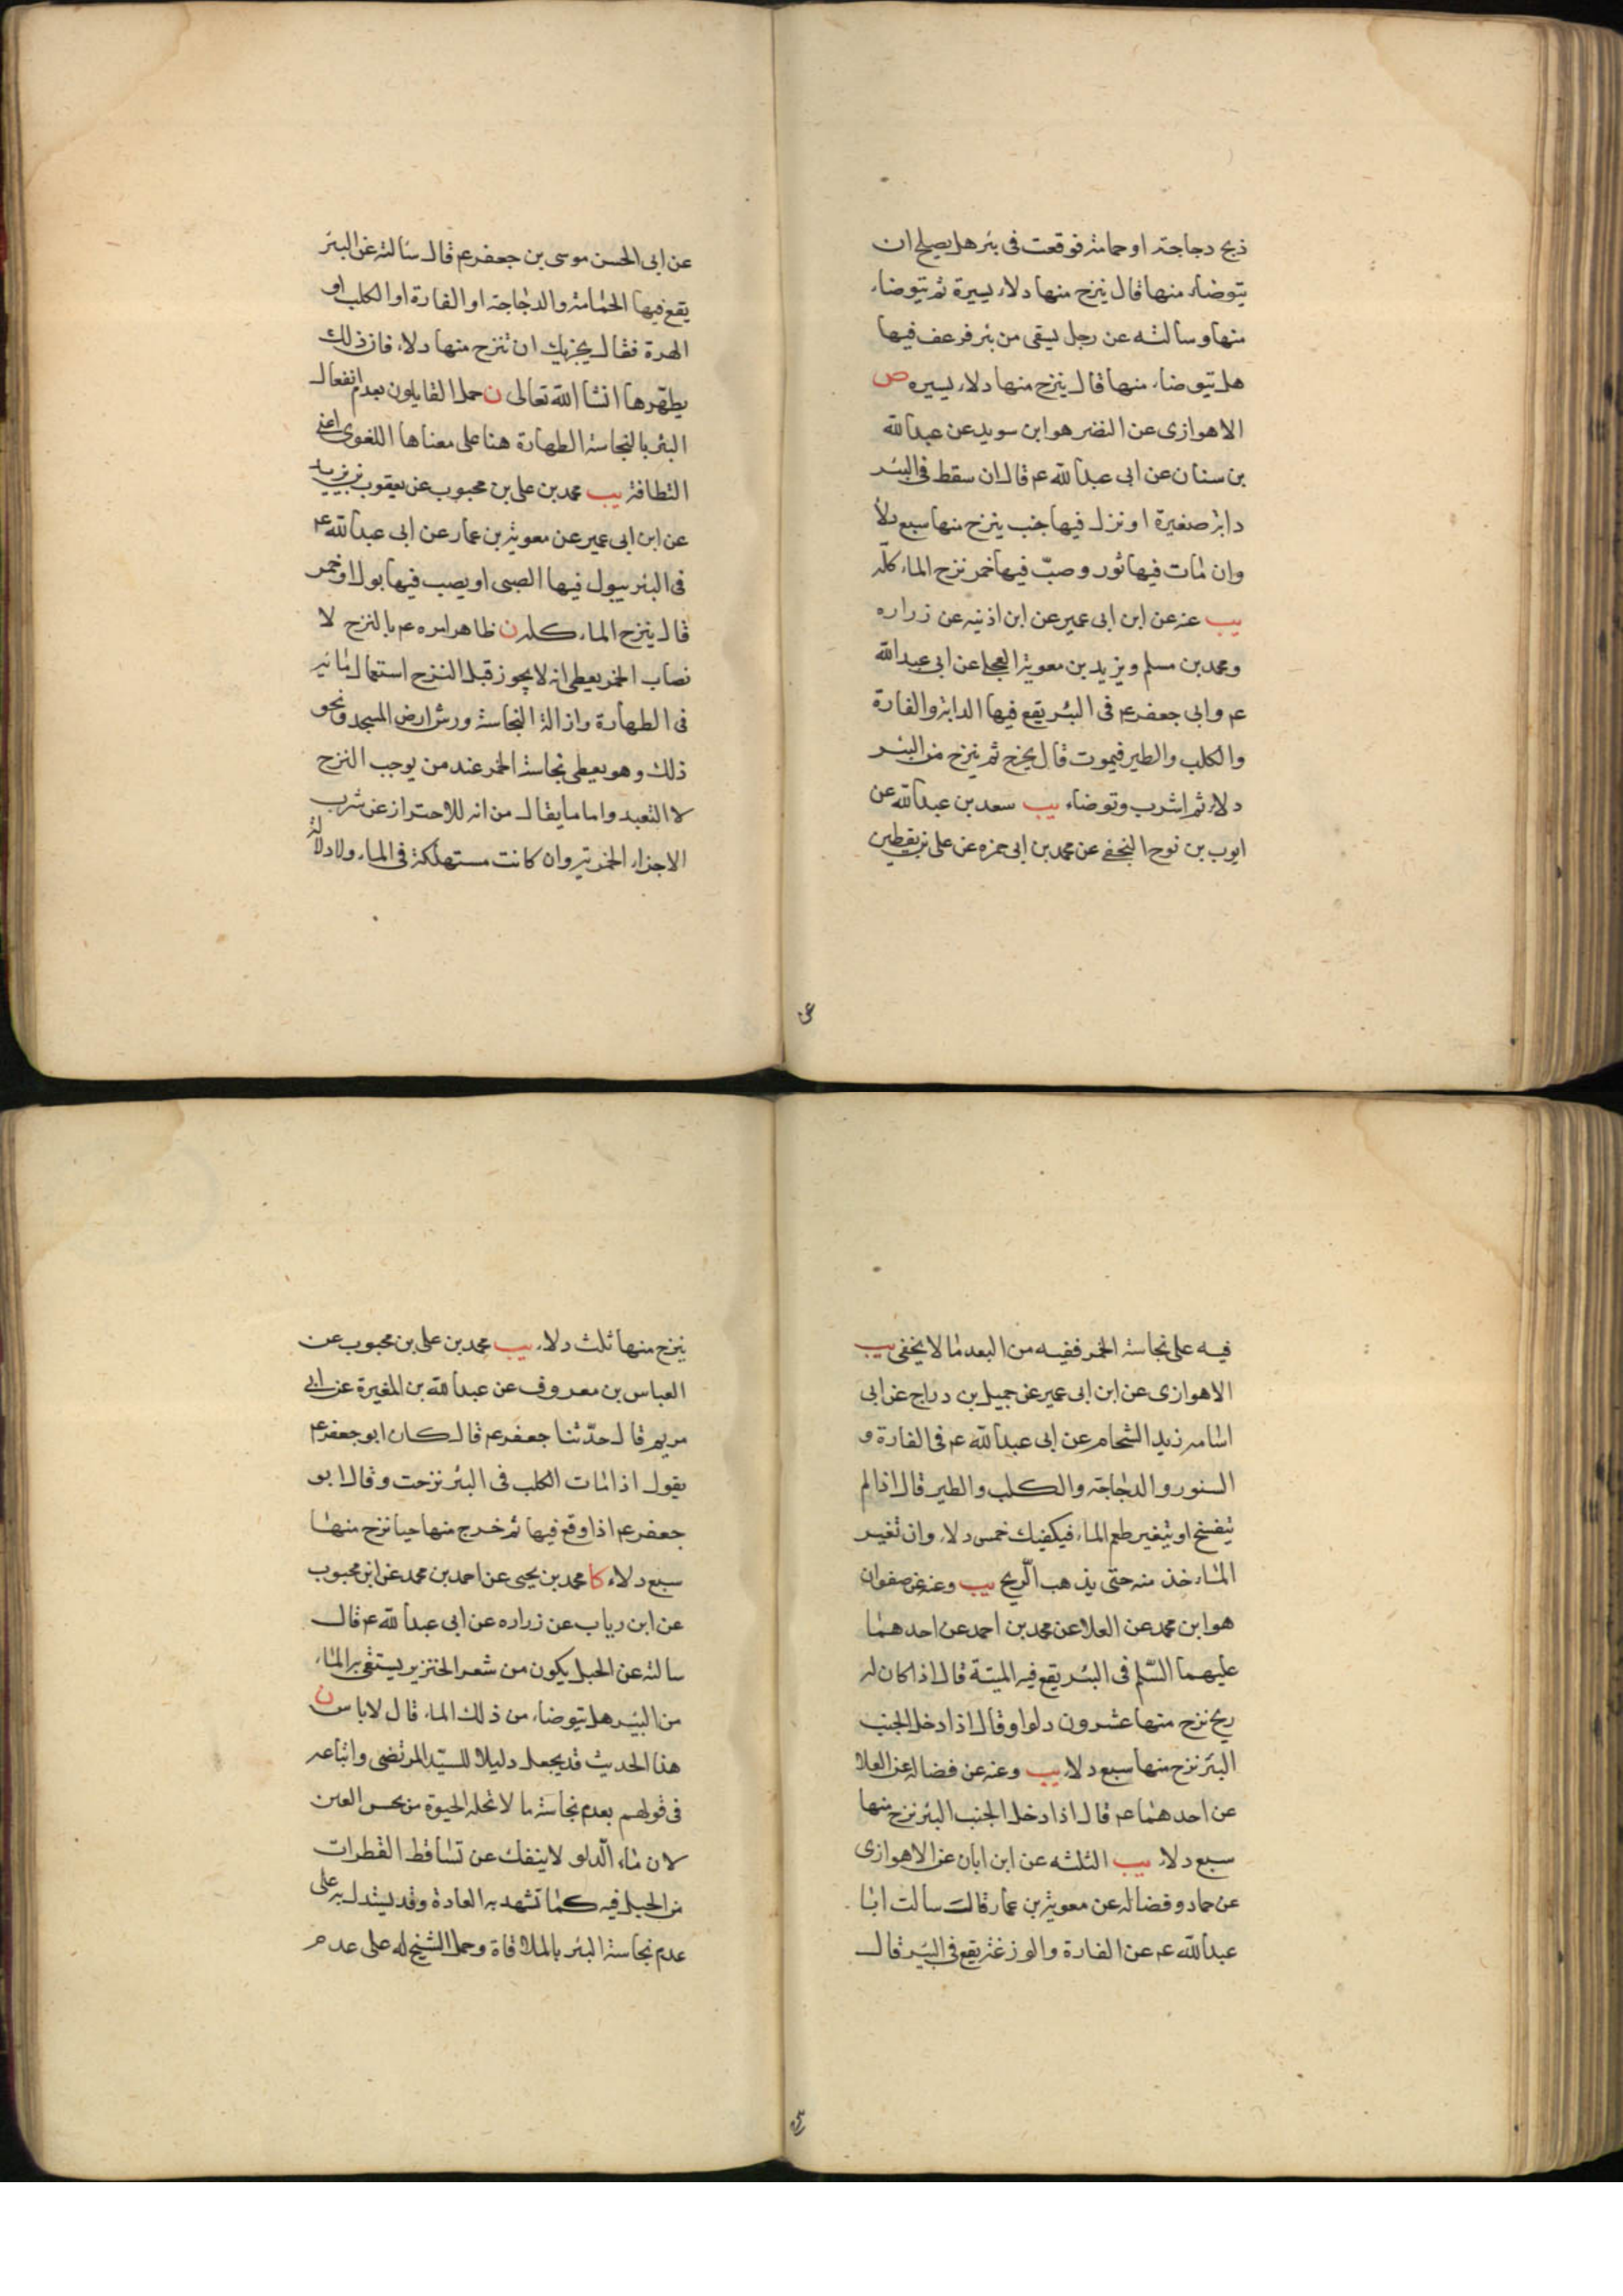 ذبح دجاجة او حمامة فوقعت فى بئر هل يصلح ان
يتوضاء منها قال ينزح منها دلاء يسيرة ثم يتوضاء
منها وسالته عن رجل يسقى من بئر فرعف فيها
هل يتوضاء منها قال ينزح منها دلاء يسيره ص
الاهوازى عن النضر هو ابن سويد عن عبد الله
بن سنان عن ابى عبد الله ع قال ان سقط فى البئر
دابة صغيرة او نزل فيها جنب ينزح منها سبع دلاء
وان مات فيها ثور وصبّ فيها خمر نزح الماء كلّه
يب عنه عن ابن ابى عمير عن ابن اذنيه عن زراره
ومحمد بن مسلم ويزيد بن معوية العجلى عن ابى عبد الله
ع وابى جعفر ع فى البئر يقع فيها الدابة والفارة
والكلب والطير فيموت قال يخرج ثم ينزح من البئر
دلاء ثم اشرب وتوضاء يب سعد بن عبد الله عن
ايوب بن نوح النخعى عن محمد بن ابى حمزه عن على بن يقطين
عن ابى الحسن موسى بن جعفر ع قال سالته عن البئر
يقع فيها الحمامة والدجاجة او الفارة او الكلب او
الهرة فقال يجزيك ان تنزح منها دلاء فان ذلك
يطهّرها انشا الله تعالى ن حمل القايلون بعدم انفعال
البئر بالنجاسة الطهارة هنا على معناها اللغوى اعنى
النظافة يب محمد بن على بن محبوب عن يعقوب بن يزيد
عن ابن ابى عمير عن معوية بن عمار عن ابى عبد الله ع
فى البئر يبول فيها الصبى او يصب فيها بول او خمر
قال ينزح الماء كله ن ظاهر امره ع بالنزح لا
نصاب الخمر يعطى انه لا يجوز قبل النزح استعمال مائه
فى الطهارة وازالة النجاسة ورش ارض المسجد ونحو
ذلك وهو يعطى نجاسة الخمر عند من يوجب النزح
لا التعبد واما ما يقال من انه للاحتراز عن شرب
الاجزاء الخمرية وان كانت مستهلكة فى الماء ولا دلالة
فيه على نجاسة الخمر ففيه من البعد ما لا يخفى يب
الاهوازى عن ابن ابى عمير عن جميل بن دراج عن ابى
اسامه زيد الشحام عن ابى عبد الله ع فى الفارة و
السنور والدجاجة والكلب والطير قال اذا لم
يتفسخ او يتغير طعم الماء فيكفيك خمس دلاء وان تغير
الماء خذ منه حتى يذهب الريح يب وعنه عن صفوان
هو ابن محمد عن العلا عن محمد بن احمد عن احدهما
عليهما السّلم فى البئر يقع فيه الميتة قال اذا كان له
ريح نزح منها عشرون دلوا وقال اذا دخل الجنب
البئر نزح منها سبع دلاء يب وعنه عن فضاله عن العلا
عن احدهما ع قال اذا دخل الجنب البئر نزح منها
سبع دلاء يب الثلثه عن ابن ابان عن الاهوازى
عن حماد وفضاله عن معوية بن عمار قالت سالت ابا
عبد الله ع عن الفارة والوزغة يقع فى البئر قال
ينزح منها ثلث دلاء يب محمد بن على بن محبوب عن
العباس بن معروف عن عبد الله بن المغيرة عن ابى
مريم قال حدّثنا جعفر ع قال كان ابو جعفر ع
يقول اذا مات الكلب فى البئر نزحت وقال ابو
جعفر ع اذا وقع فيها ثم خرج منها حيا نزح منها
سبع دلاء كا محمد بن يحيى عن احمد بن محمد عن ابن محبوب
عن ابن رياب عن زراره عن ابى عبد الله ع قال
سالته عن الحبل يكون من شعر الخنزير يستقى به الماء
من البئر هل يتوضاء من ذلك الماء قال لا باس ن
هذا الحديث قد يجعل دليلا للسيّد المرتضى واتباعه
فى قولهم بعدم نجاسة ما لا تحله الحيوة من نجس العين
لان ماء الدلو لا ينفك عن تساقط القطرات
من الحبل فيه كما تشهد به العادة وقد يستدل به على
عدم نجاسة البئر بالملاقاة وحمل الشيخ له على عدم